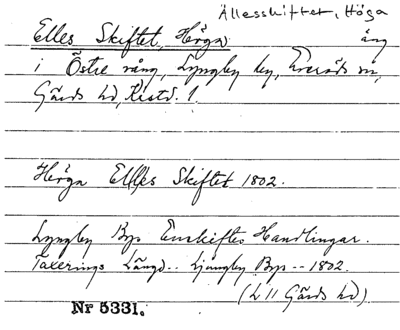 Ällesskiftet, Höga
Elles Skiftet, Höga äng
i Östre vång, Lyngby by, Everöds sn,
Gärds hd, Kristd. l.
Höga Elles Skiftet 1802.
Lyngby Bys Enskiftes Handlingar.
Taxerings Längd.. Ljungby Bys -- 1802.
(L 11 Gärds hd)
Nr 5331.